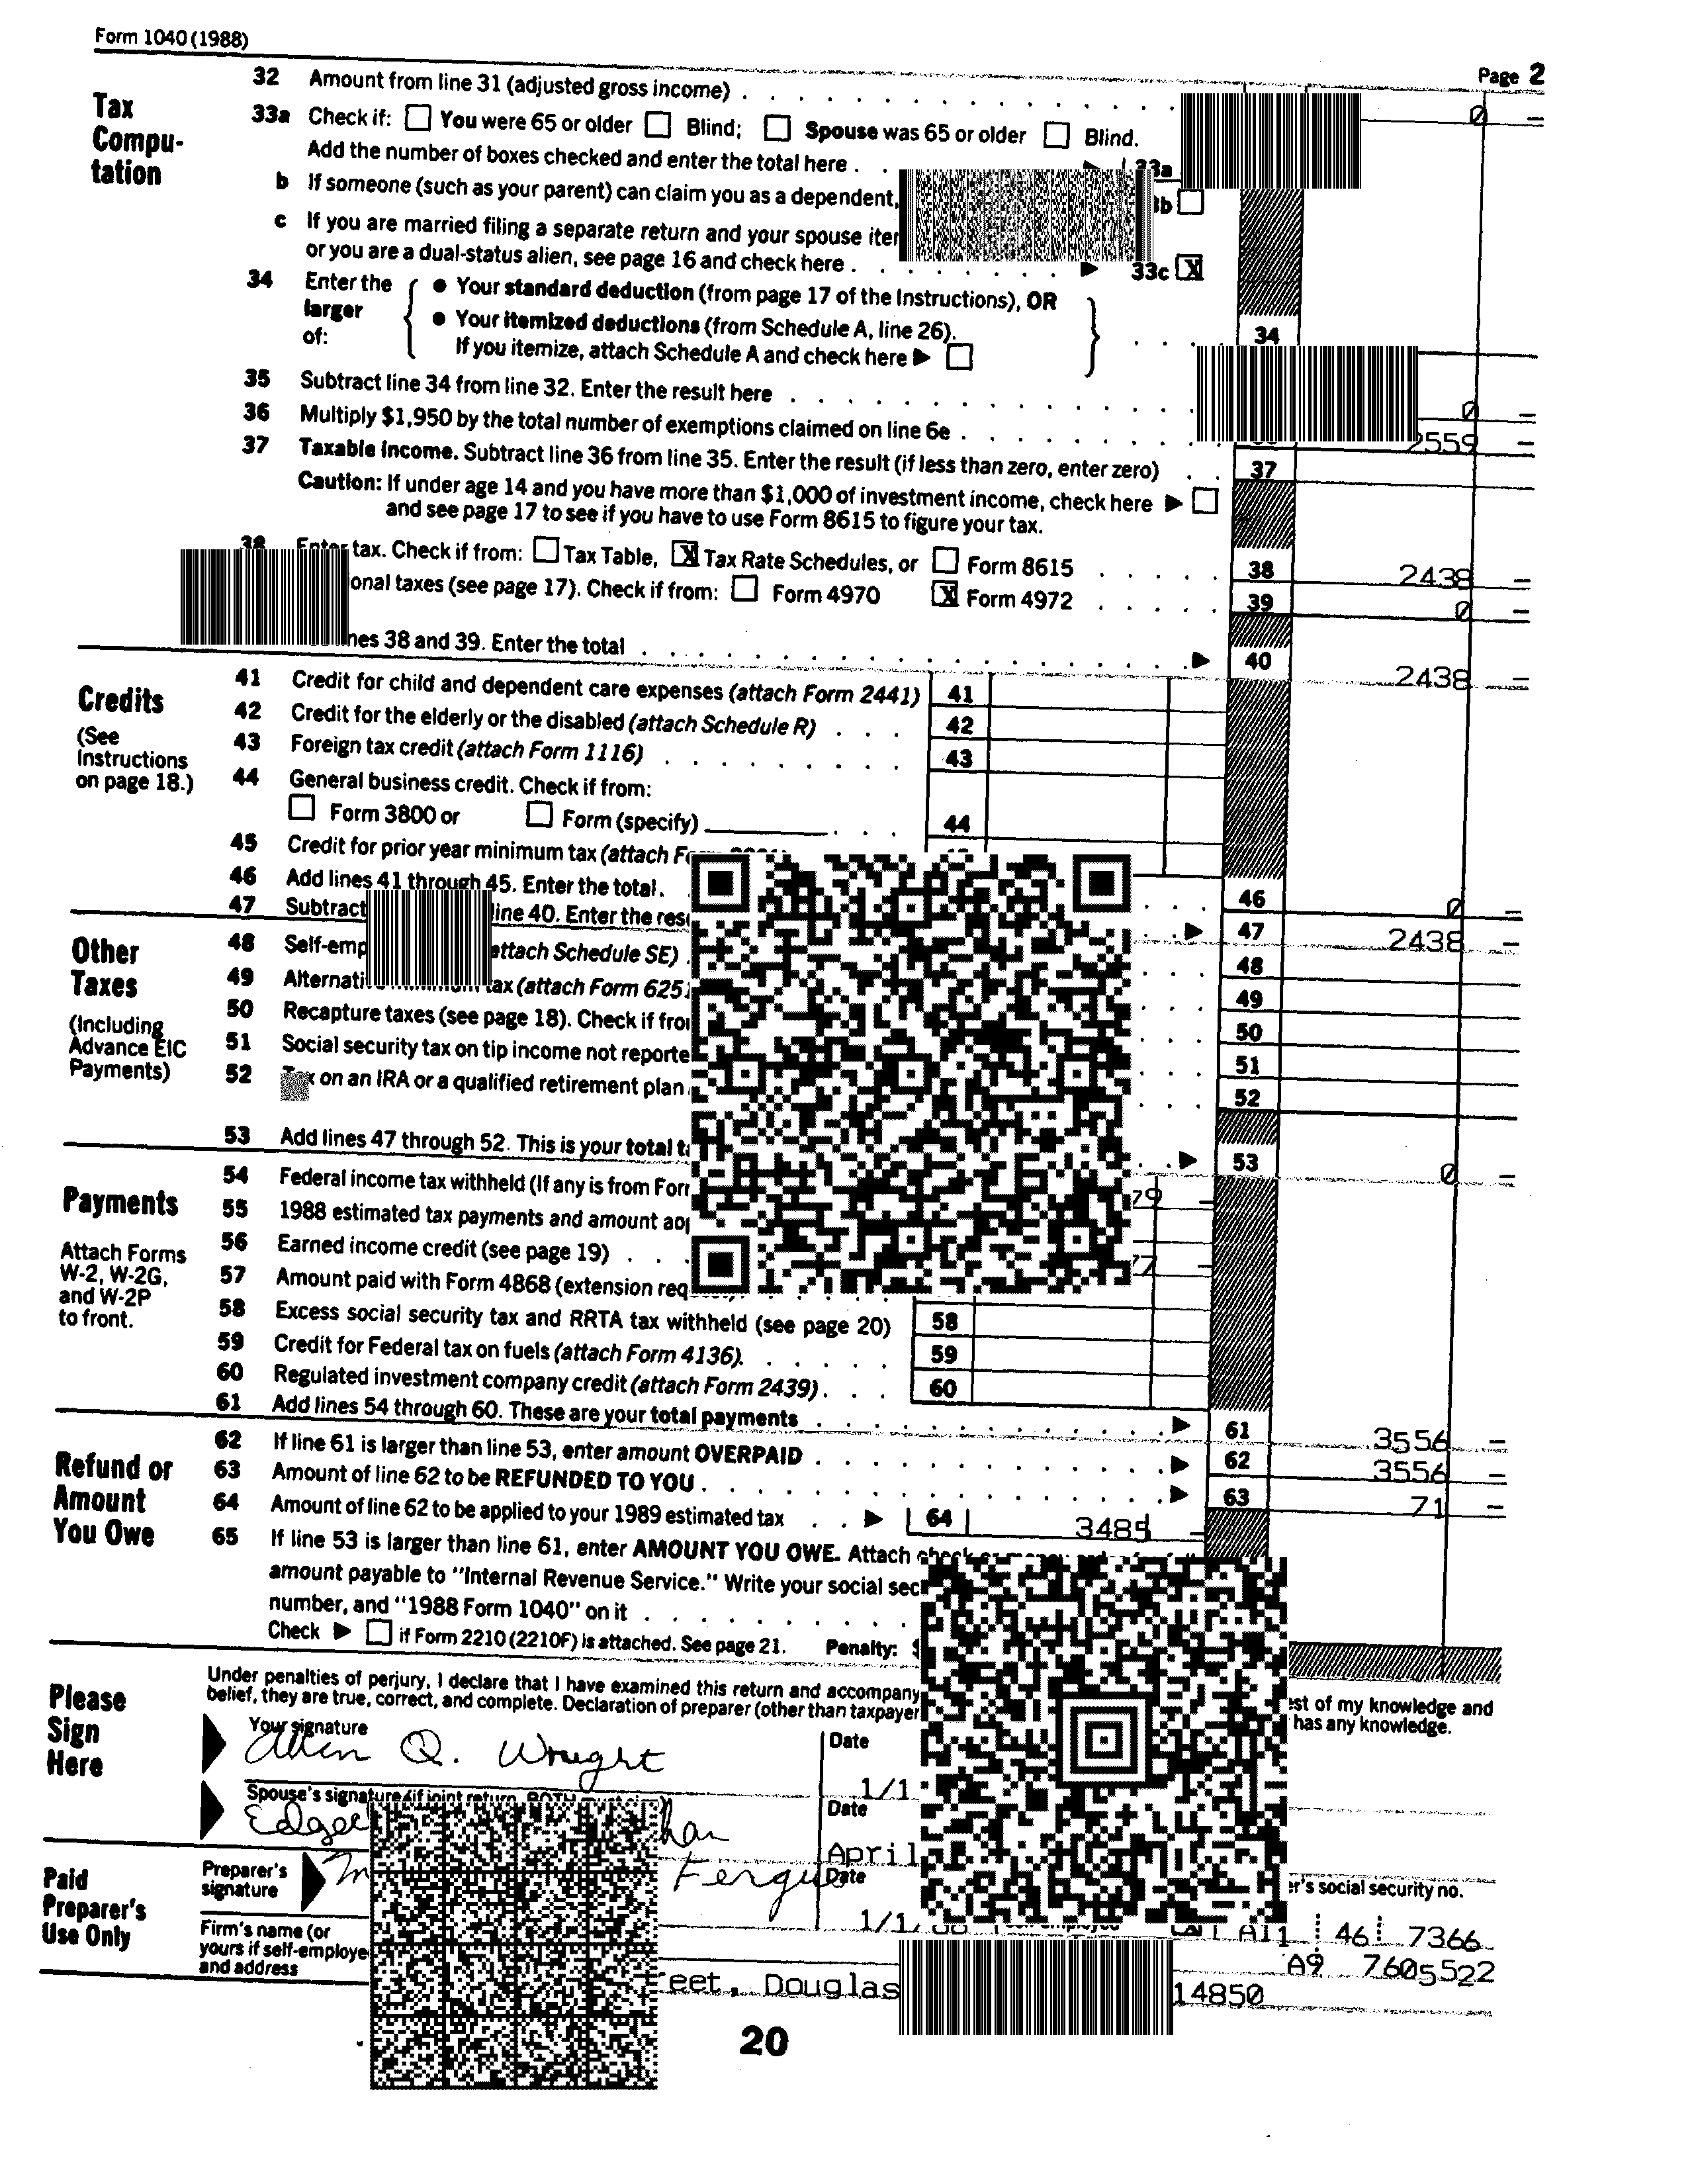 Form 1040 (1988)
Page 2
Tax Compu-
tation
32 Amount from line 31 (adjusted gross income) 0 –
33a Check if: You were 65 or older Blind; Spouse was 65 or older Blind.
Add the number of boxes checked and enter the total here 33a
b If someone (such as your parent) can claim you as a dependent,
c If you are married filing a separate return and your spouse
or you are a dual-status alien, see page 16 and check here 33c X
34 Enter the larger of:
• Your standard deduction (from page 17 of the Instructions), OR
• Your itemized deductions (from Schedule A, line 26).
If you itemize, attach Schedule A and check here 34
35 Subtract line 34 from line 32. Enter the result here 0 –
36 Multiply $1,950 by the total number of exemptions claimed on line 6e 2559 –
37 Taxable income. Subtract line 36 from line 35. Enter the result (if less than zero, enter zero) 37
Caution: If under age 14 and you have more than $1,000 of investment income, check here
and see page 17 to see if you have to use Form 8615 to figure your tax.
38 Enter tax. Check if from: Tax Table, X Tax Rate Schedules, or Form 8615 38 2438 –
taxes (see page 17). Check if from: Form 4970 X Form 4972 39 0 –
38 and 39. Enter the total 40 2438 –
Credits
(See
Instructions
on page 18.)
41 Credit for child and dependent care expenses (attach Form 2441) 41
42 Credit for the elderly or the disabled (attach Schedule R) 42
43 Foreign tax credit (attach Form 1116) 43
44 General business credit. Check if from:
Form 3800 or Form (specify) 44
45 Credit for prior year minimum tax (attach
46 Add lines 41 through 45. Enter the total. 46 0 –
47 Subtract line 40. Enter the 47 2438 –
Other
Taxes
(Including
Advance EIC
Payments)
48 attach Schedule SE) 48
49 tax (attach Form 6251 49
50 Recapture taxes (see page 18). Check if 50
51 Social security tax on tip income not 51
52 on an IRA or a qualified retirement plan 52
53 Add lines 47 through 52. This is your total 53 0 –
Payments
Attach Forms
W-2, W-2G,
and W-2P
to front.
54 Federal income tax withheld (If any is from
55 1988 estimated tax payments and amount
56 Earned income credit (see page 19)
57 Amount paid with Form 4868 (extension
58 Excess social security tax and RRTA tax withheld (see page 20) 58
59 Credit for Federal tax on fuels (attach Form 4136). 59
60 Regulated investment company credit (attach Form 2439) 60
61 Add lines 54 through 60. These are your total payments 61 3556 –
Refund or
Amount
You Owe
62 If line 61 is larger than line 53, enter amount OVERPAID 62 3556 –
63 Amount of line 62 to be REFUNDED TO YOU 63 71 –
64 Amount of line 62 to be applied to your 1989 estimated tax 64 3485 –
65 If line 53 is larger than line 61, enter AMOUNT YOU OWE. Attach
amount payable to "Internal Revenue Service." Write your social
number, and "1988 Form 1040" on it
Check if Form 2210 (2210F) is attached. See page 21. Penalty:
Please
Sign
Here
Under penalties of perjury, I declare that I have examined this return and
of my knowledge and
belief, they are true, correct, and complete. Declaration of preparer (other than taxpayer
has any knowledge.
Your signature
Q. Wright
Date
1/1
Spouse's signature
Date
April
Paid
Preparer's
Use Only
Preparer's
signature
Date
social security no.
46 7366
Firm's name (or
yours if self-employed
and address
A9 7605522
Douglas
14850
20